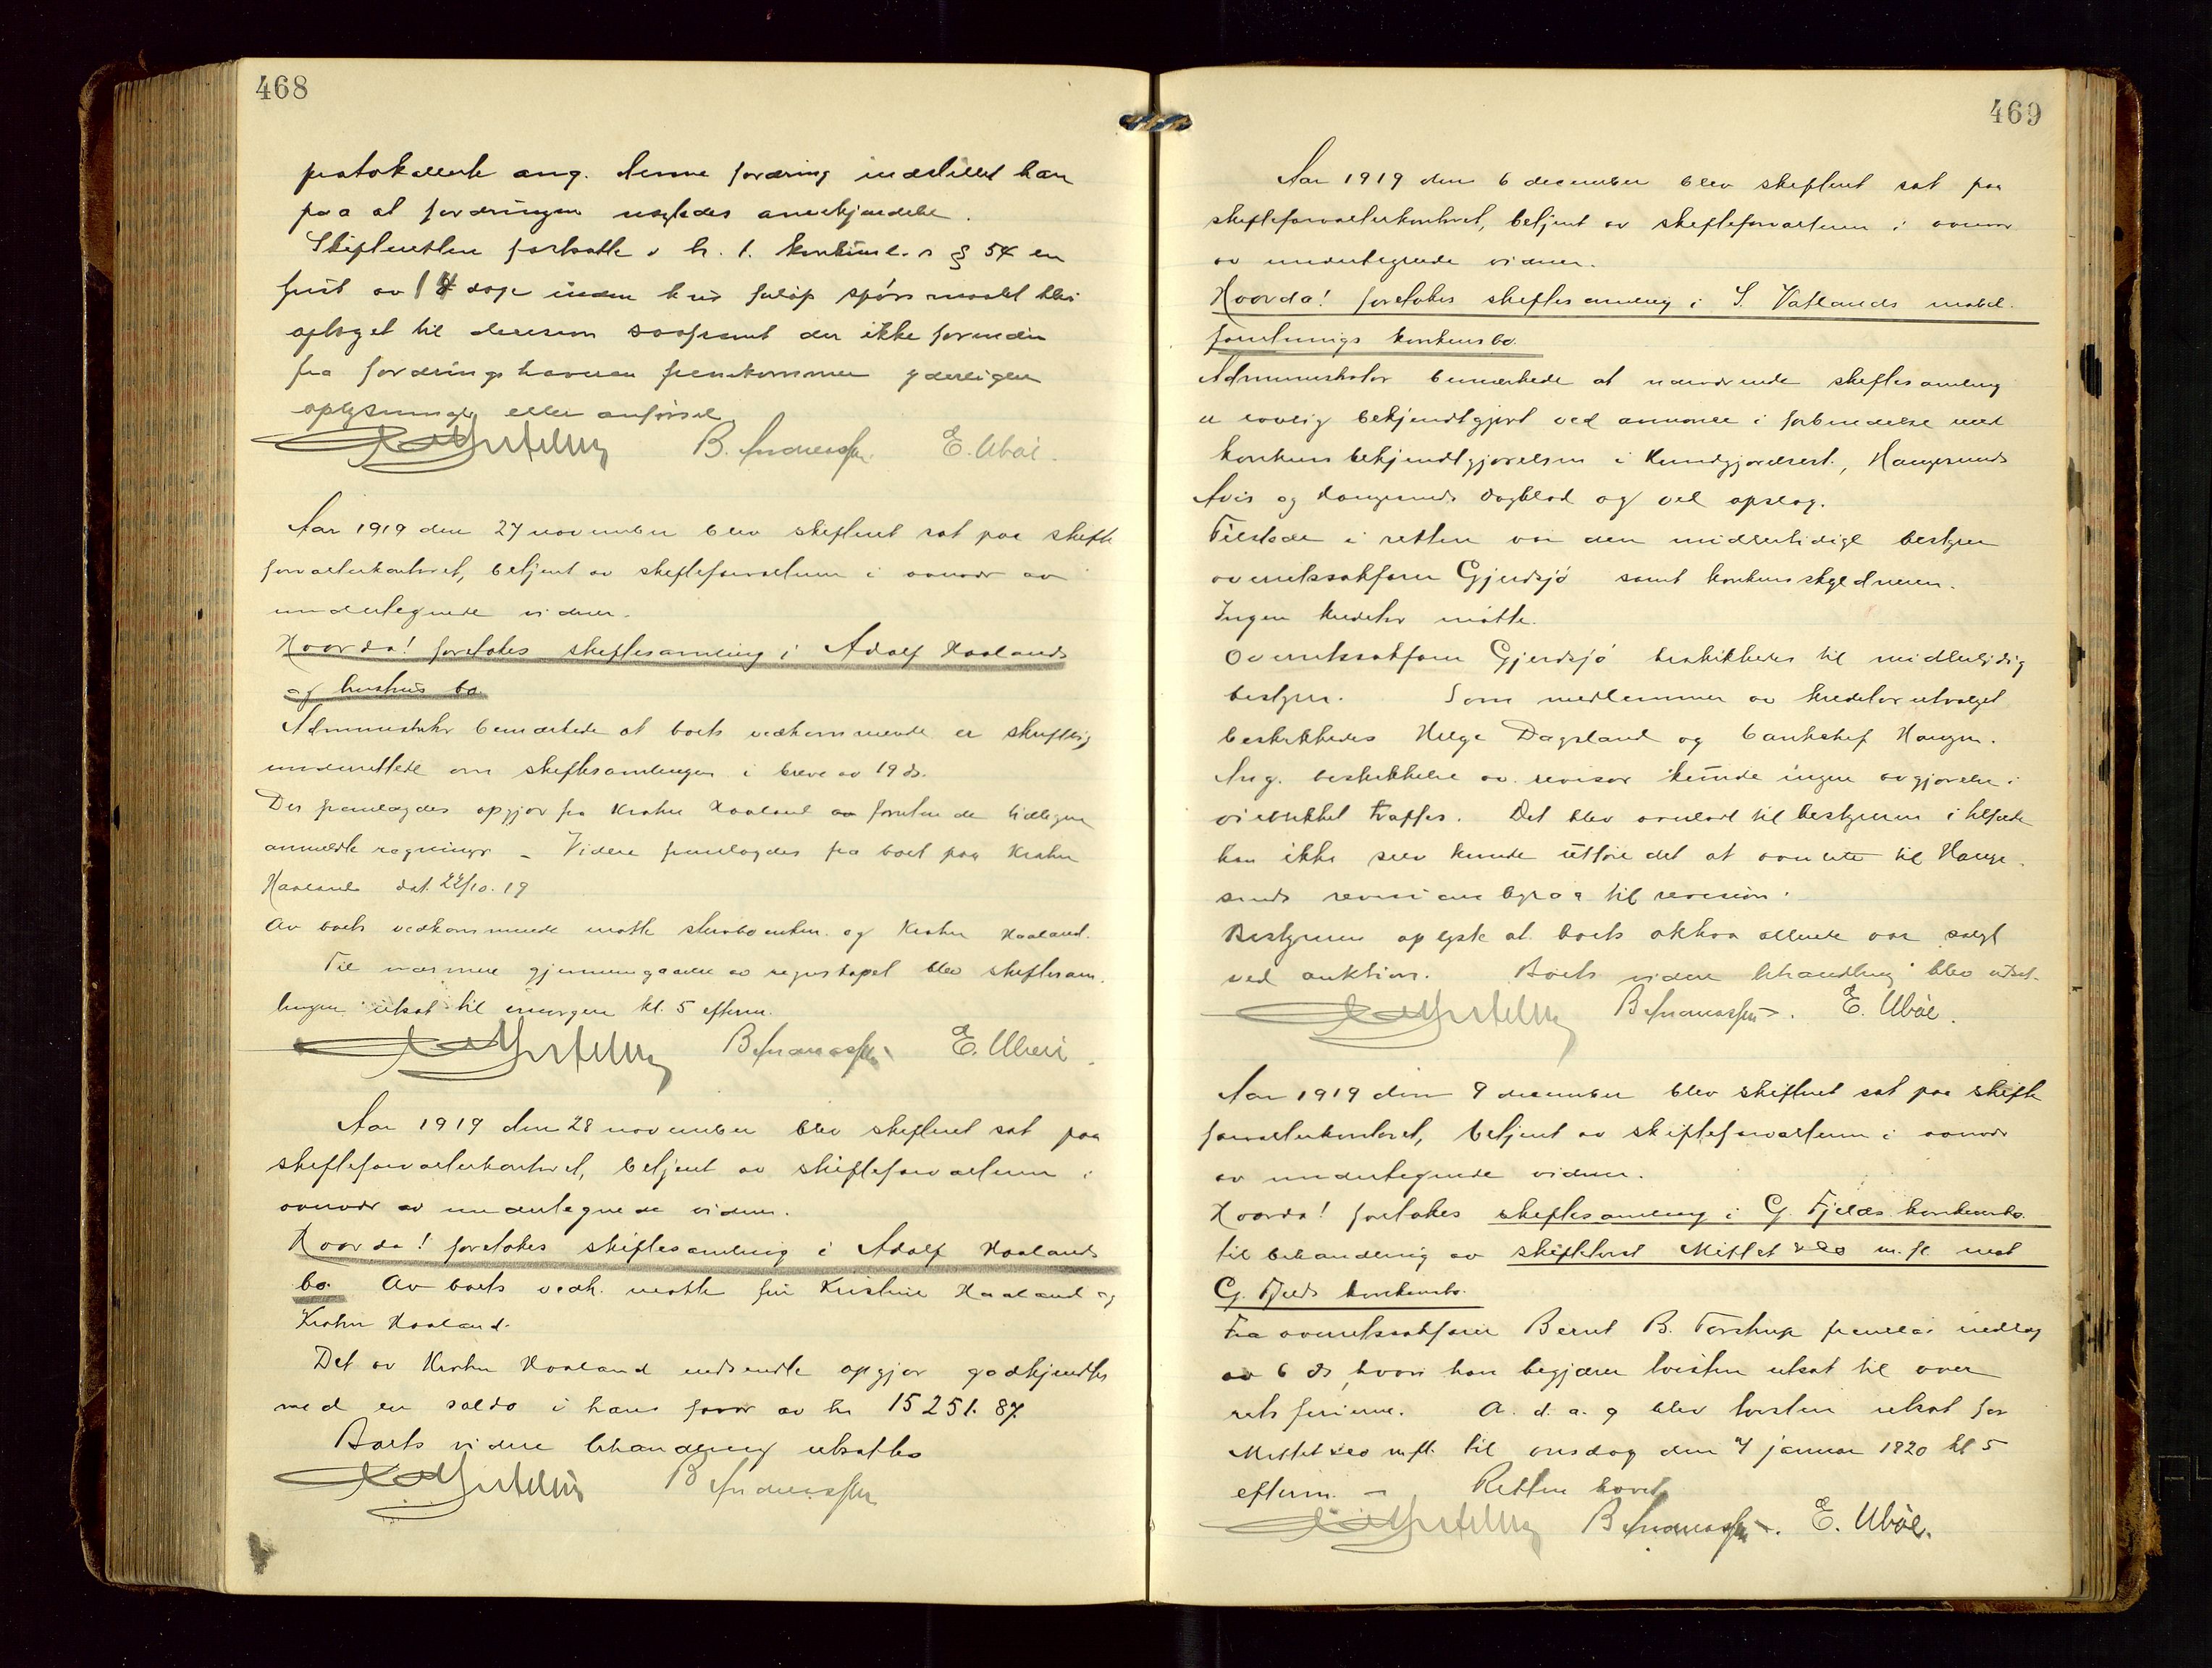 468
protokollerte ang. denne fordring indstillet han
paa at fordringen negtedes anerkjendelse.
Skifteretten fortsatte i h. t. konkursl.s § 54 en
frist av 14 dage inden hvis forløp spørsmaalet blir
optaget til decision saafremt der ikke forinden
fra fordringshaveren fremkommer yderligere
oplysninger eller anførsel
B. E. Ubøe.
Aar 1919 den 27 november blev skifteret sat paa skifte
forvalterkontoret, betjent av skifteforvalteren i overvær av
undertegnede vidner.
Hvorda! foretokes skiftesamling i Adolf Haalands
og hustrus bo.
Administrator bemærkede at boets vedkommende er skriftlig
underrettede om skiftesamlingen i breve av 19 ds.
Der fremlagdes opgjør fra Krohn Haaland foruten de tidligere
anmeldte regninger – Videre fremlagdes fra boet paa Krohn
Haaland dat. 22/10. 19
Av boets vedkommende møtte og Krohn Haaland.
Til nærmere gjennemgaaelse av regnskapet blev skiftesam
lingen utsat til imorgen kl. 5 efterm.
B E. Ubøe
Aar 1919 den 28 november blev skifteret sat paa
skifteforvalterkontoret, betjent av skifteforvalteren i
overvær av undertegnede vidner.
Hvorda! foretokes skiftesamling i Adolf Haalands
bo. Av boets vedk. møtte fru Kristine Haaland og
Krohn Haaland.
Det av Krohn Haaland indsendte opgjør godkjendtes
med en saldo i hans favør av kr 15251.87.
Boets videre behandling utsattes
B
469
Aar 1919 den 6 december blev skifteret sat paa
skifteforvalterkontoret, betjent av skifteforvalteren i overvær
av undertegnede vidner.
Hvorda! foretokes skiftesamling i S. Vatlands møbel-
forretnings konkursbo.
Administrator bemærkede at nærværende skiftesamling
er lovlig bekjendtgjort ved annonce i forbindelse med
konkursbekjendtgjørelsen i Kundgjørelsest., Haugesunds
Avis og Haugesunds dagblad og ved opslag.
Tilstede i retten var den midlertidige bestyrer
overretssakfører Gjerdsjø samt konkursskyldneren.
Ingen kreditor møtte.
Overretssakfører Gjerdsjø beskikkedes til midlertidig
bestyrer. Som medlemmer av kreditorutvalget
beskikkedes Helge Dagsland og bankchef Haugen.
Ang. beskikkelse av revisor kunde ingen avgjørelse i
øieblikket træffes. Det blev overlatt til bestyreren i tilfælde
han ikke selv kunde utføre det at overlate til Hauge-
sunds revisionsbyraa til revision.
Bestyreren oplyste at boets aktiva allerede var solgt
ved auktion. Boets videre behandling blev utsat.
B E. Ubøe.
Aar 1919 den 9 december blev skifteret sat paa skifte
forvalterkontoret, betjent av skifteforvalteren i overvær
av undertegnede vidner.
Hvorda! foretokes skiftesamling i G. Fjelds konkursbo
til behandling av skiftetvist Mittet & Co m. fl. mot
G. Fjelds konkursbo.
Fra overretssakfører Bernt B. Torstrup fremlaa indlæg
av 6 ds, hvori han begjærer tvisten utsat til over
retsferierne. A. d. a. g blev tvisten utsat for
Mittet & Co m.fl. til onsdag den 7 januar 1920 kl 5
efterm. – Retten hævet
B E. Ubøe.